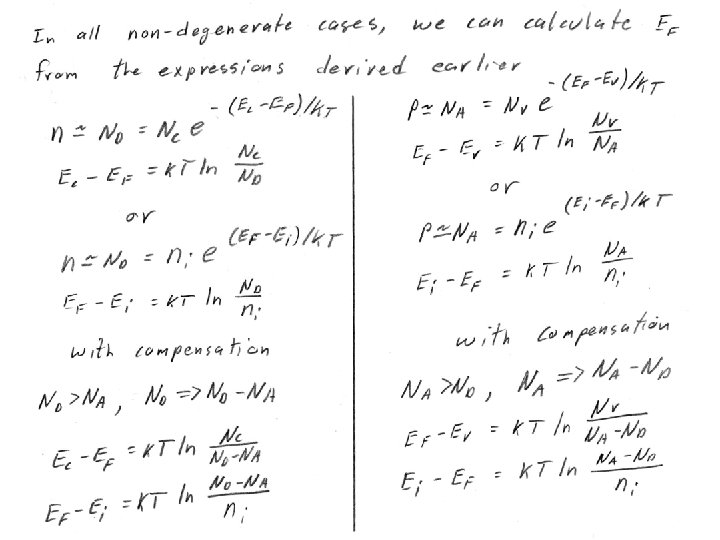 In all non-degenerate cases, we can calculate E_F
from the expressions derived earlier
n ≃ N_D = N_c e^{-(E_c-E_F)/kT}
E_c - E_F = kT ln N_c/N_D
or
n ≃ N_D = n_i e^{(E_F-E_i)/kT}
E_F - E_i = kT ln N_D/n_i
with compensation
N_D > N_A, N_D => N_D - N_A
E_c - E_F = kT ln N_c/(N_D-N_A)
E_F - E_i = kT ln (N_D-N_A)/n_i
p ≃ N_A = N_v e^{-(E_F-E_v)/kT}
E_F - E_v = kT ln N_v/N_A
or
p ≃ N_A = n_i e^{(E_i-E_F)/kT}
E_i - E_F = kT ln N_A/n_i
with compensation
N_A > N_D, N_A => N_A - N_D
E_F - E_v = kT ln N_v/(N_A-N_D)
E_i - E_F = kT ln (N_A-N_D)/n_i